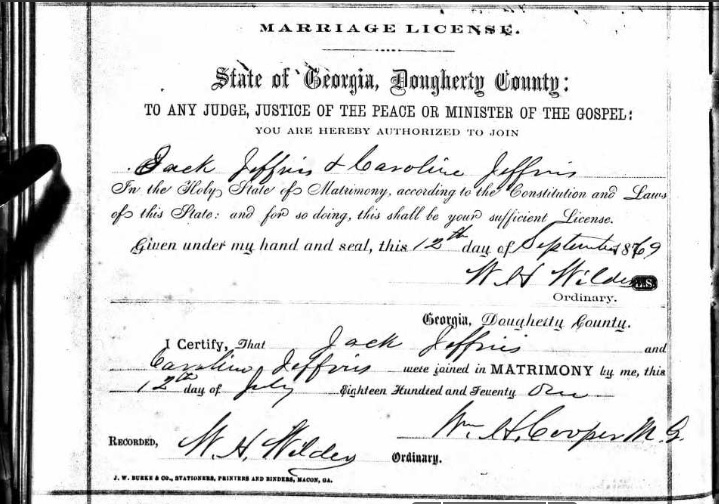 MARRIAGE LICENSE.
State of Georgia, Dougherty County:
TO ANY JUDGE, JUSTICE OF THE PEACE OR MINISTER OF THE GOSPEL:
YOU ARE HEREBY AUTHORIZED TO JOIN
Jack Jeffries & Caroline Jeffries
In the Holy State of Matrimony, according to the Constitution and Laws
of this State: and for so doing, this shall be your sufficient License.
Given under my hand and seal, this 12th day of September 1869
W H Wilder L.S.
Ordinary.
Georgia, Dougherty County.
I Certify, That Jack Jeffries and
Caroline Jeffries were joined in MATRIMONY by me, this
12th day of July Eighteen Hundred and Seventy One
Wm. H. Cooper M. G.
RECORDED, W. H. Wilder Ordinary.
J. W. BURKE & CO., STATIONERS, PRINTERS AND BINDERS, MACON, GA.